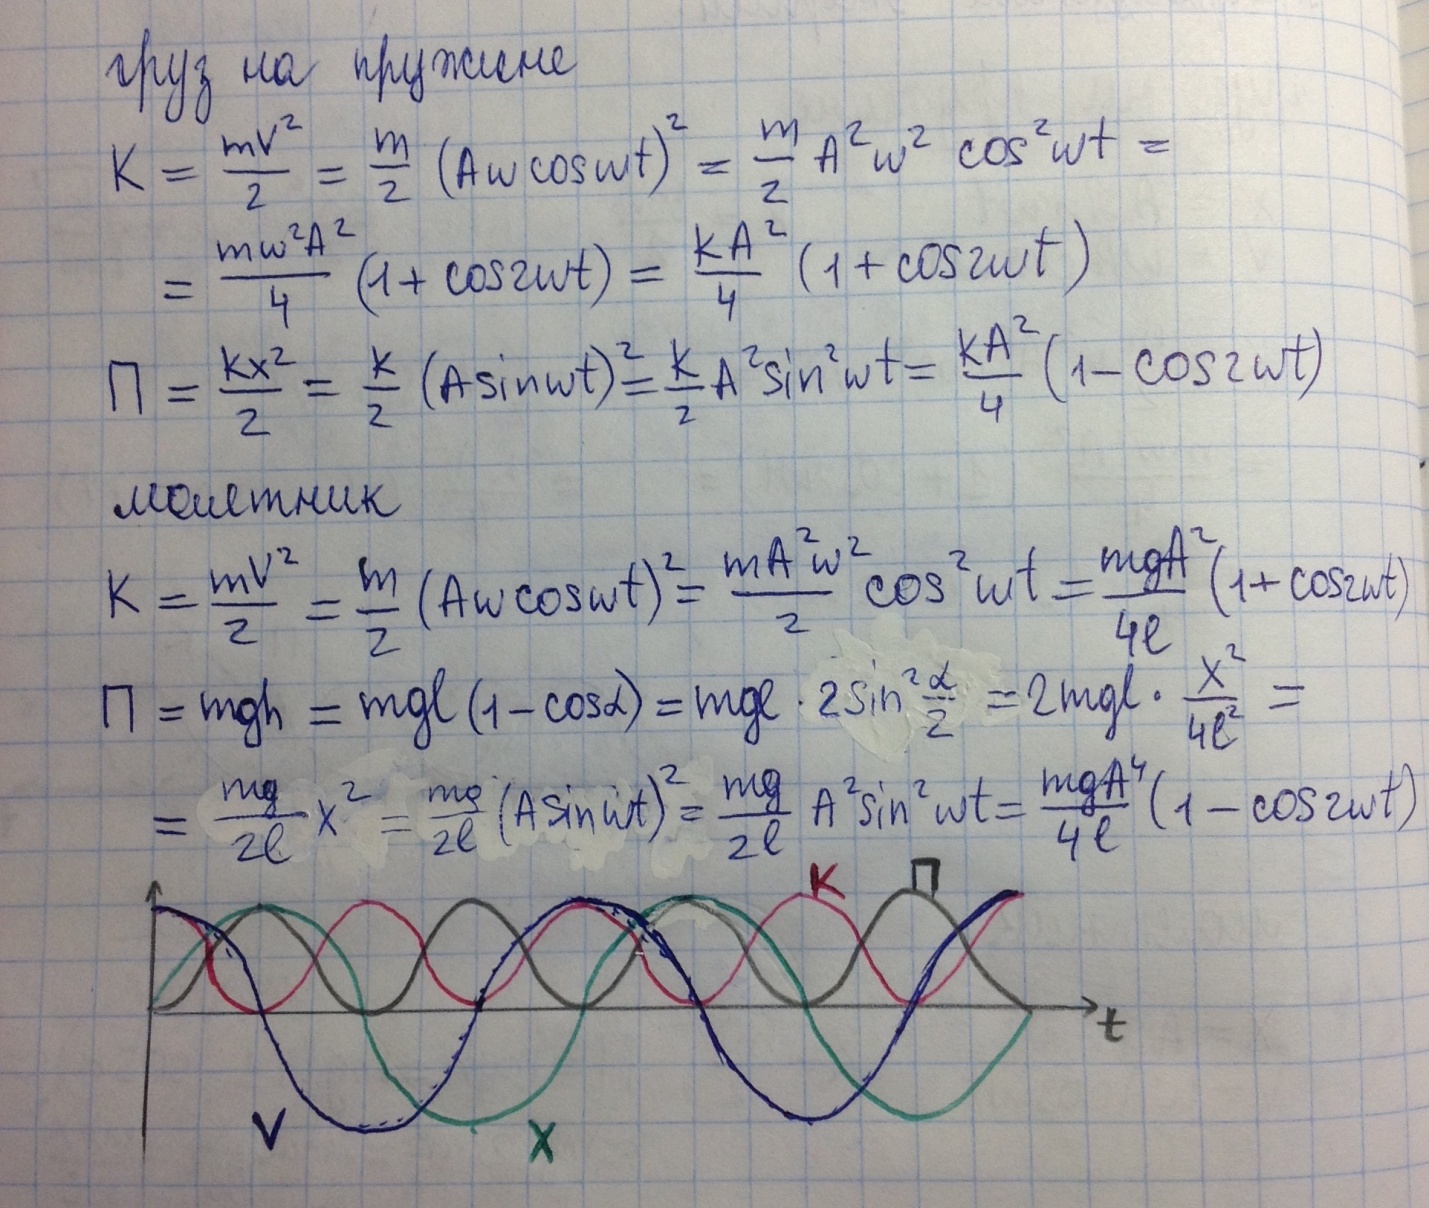 груз на пружине
K = mV²/2 = m/2 (Aw cos wt)² = m/2 A²w² cos²wt =
= mw²A²/4 (1 + cos2wt) = kA²/4 (1 + cos2wt)
П = kx²/2 = k/2 (A sin wt)² = k/2 A² sin²wt = kA²/4 (1 - cos2wt)
маятник
K = mV²/2 = m/2 (Aw cos wt)² = mA²w²/2 cos²wt = mgA²/4l (1 + cos2wt)
П = mgh = mgl (1 - cosα) = mgl · 2sin² α/2 = 2mgl · x²/4l² =
= mg/2l x² = mg/2l (A sin wt)² = mg/2l A² sin²wt = mgA⁴/4l (1 - cos2wt)
K П
t
V X